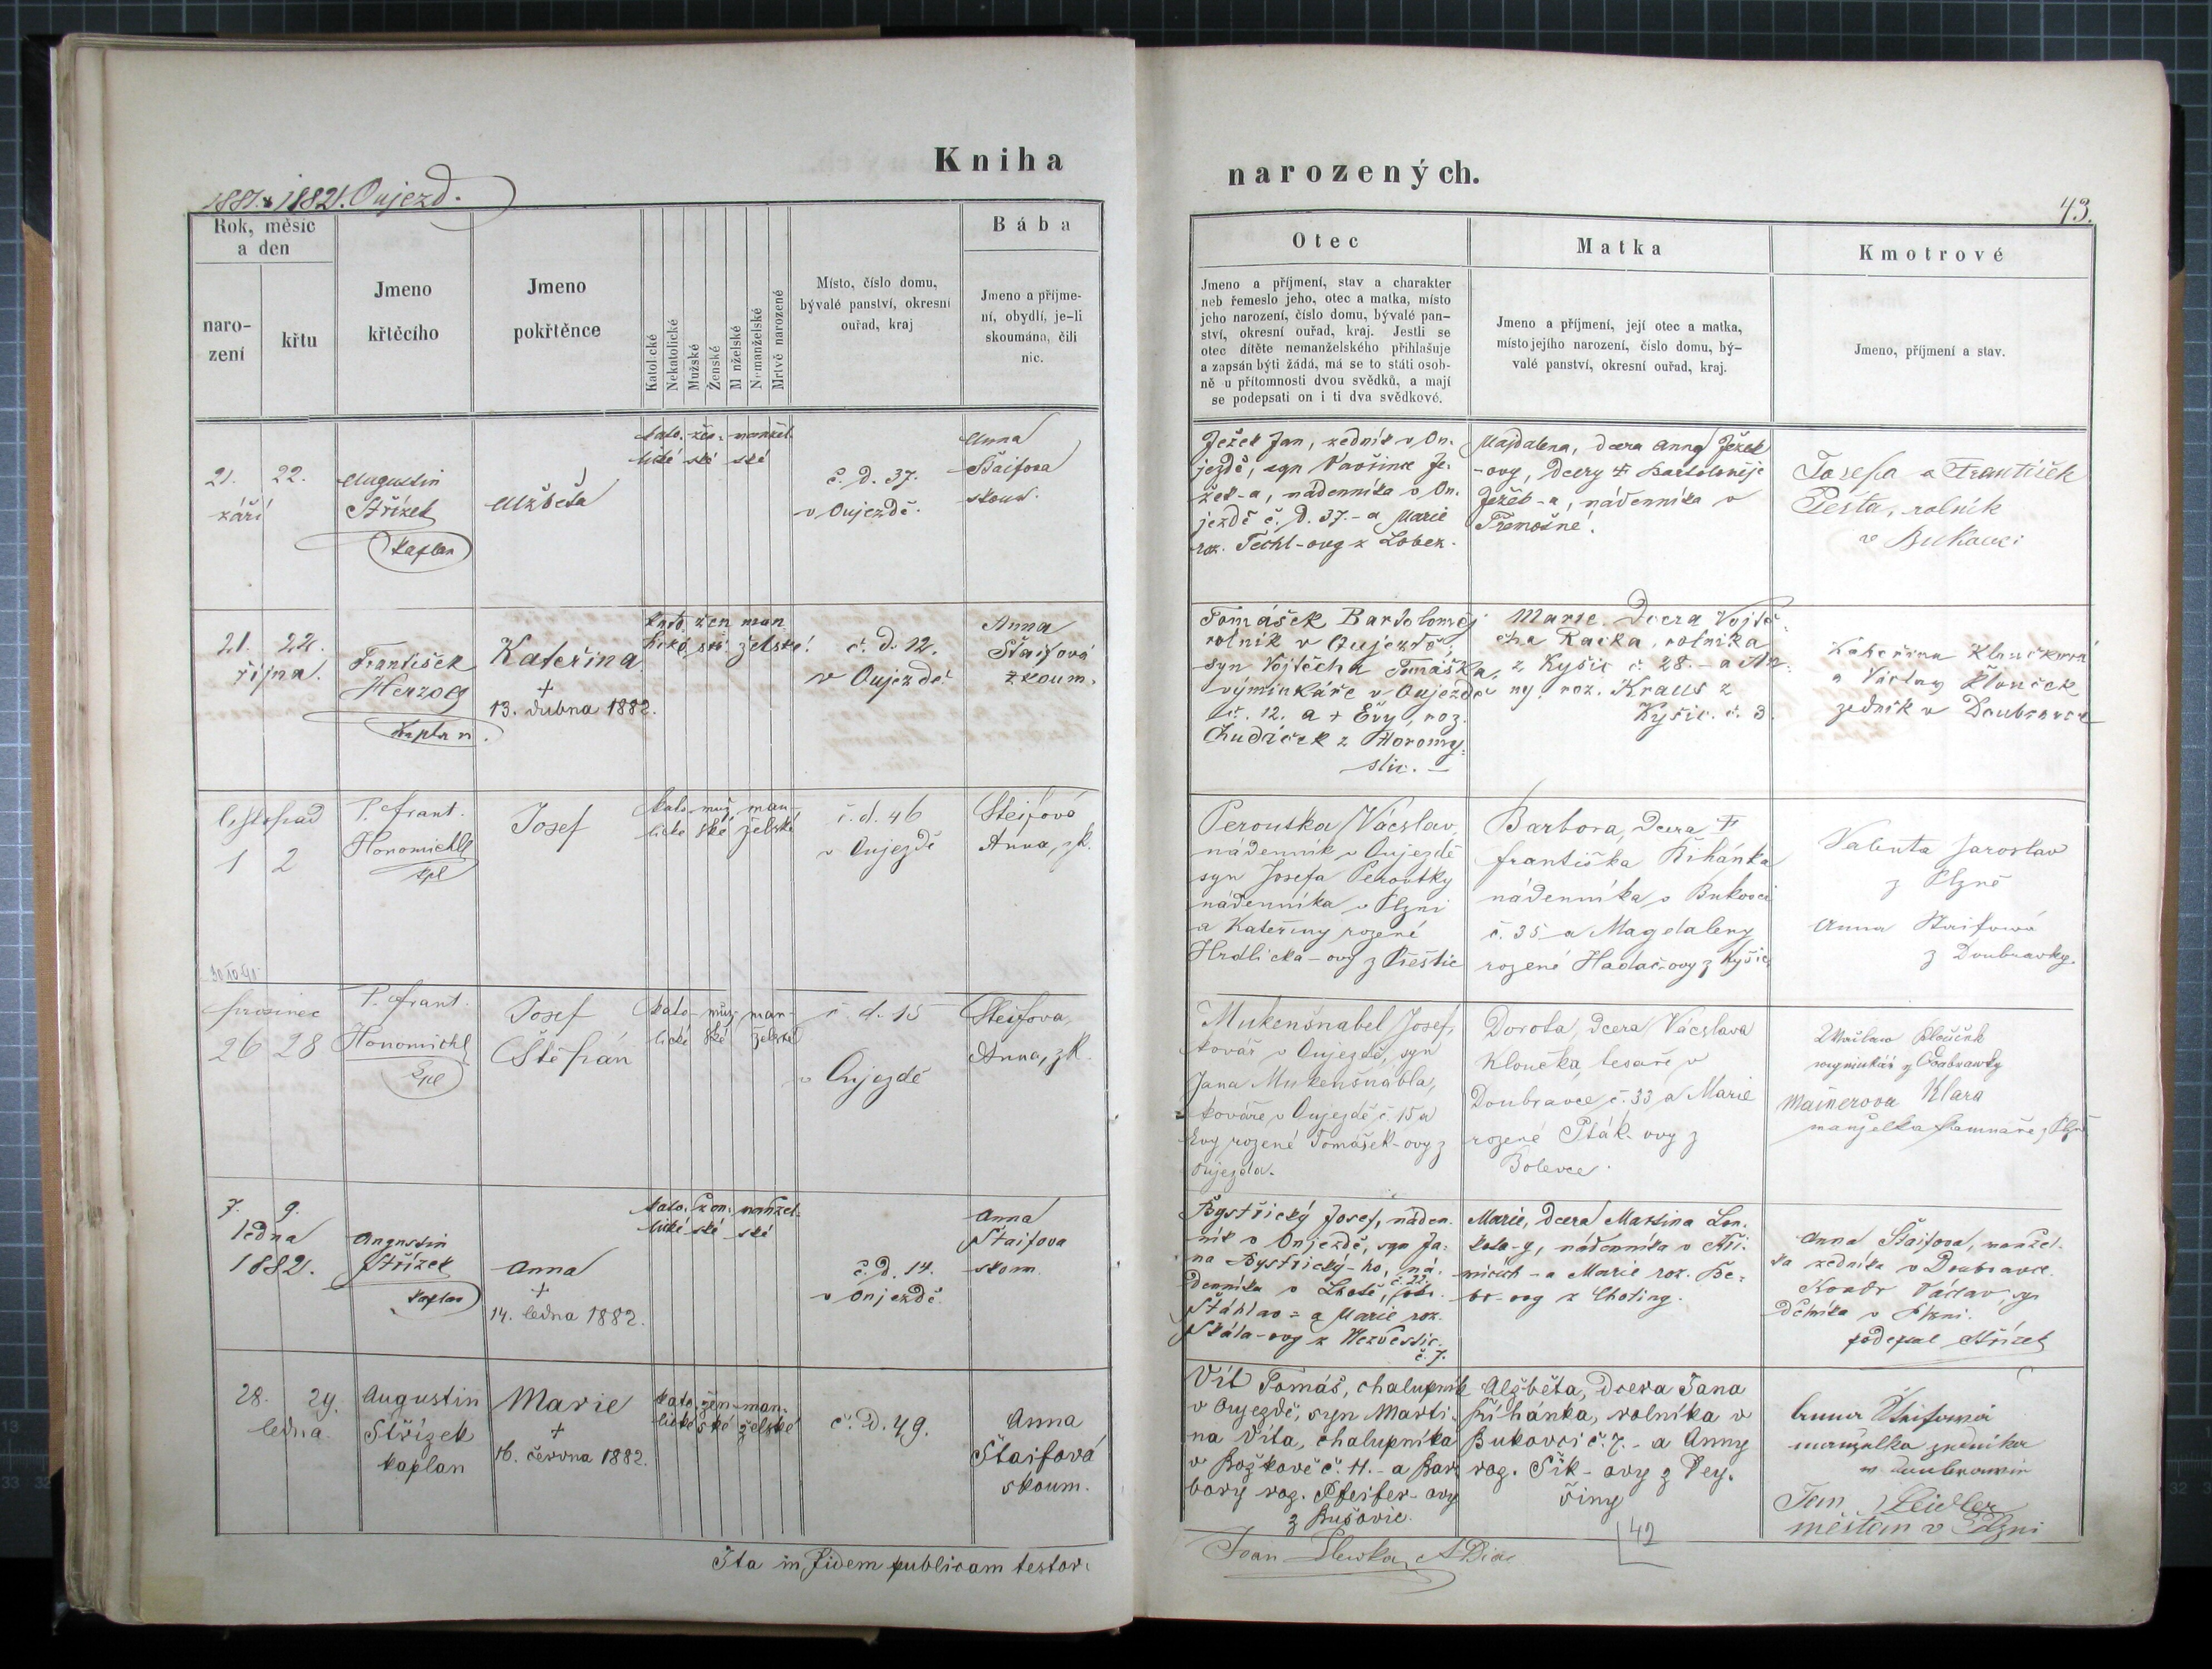 Kniha
1881. & 1882. Oujezd.
Rok, měsíc
a den
naro-
zení
křtu
Jmeno
křtěcího
Jmeno
pokřtěnce
Katolické
Nekatolické
Mužské
Ženské
Manželské
Nemanželské
Mrtvě narozené
Místo, číslo domu,
bývalé panství, okresní
ouřad, kraj
Bába
Jmeno a příjme-
ní, obydlí, je-li
skoumána, čili
nic.
21. 22.
září
Augustin
Střízek
kaplan
Alžběta
kato- žen- manžel-
lické ské ské
č. D. 37.
v Oujezdě.
Anna
Štaifova
skoum.
21. 22.
října.
František
Herzog
kaplan.
Kateřina
+
13. dubna 1882.
kato žen man
lické ské želské!
č. d. 12.
v Oujezdě
Anna
Štaifová
zkoum.
listopad
1 2
P. Frant.
Honomichl
kpl
Josef
kato- muž- man-
lické ské želské
č. d. 46
v Oujezdě
Steifová
Anna, zk.
prosinec
26 28
P. Frant.
Honomichl
kpl
Josef
Štěpán
kato- muž- man-
lické ské želské
č. d. 15
v Oujezdě
Steifova,
Anna, zk.
7. 9.
ledna
1882.
Augustin
Střízek
kaplan
Anna
+
14. ledna 1882.
kato- žen- manžel-
lické ské ské
č. D. 14.
v Oujezdě
Anna
Štaifova
skoum.
28. 29.
ledna.
Augustin
Střízek
kaplan
Marie
+
16. června 1882.
kato- žen- man-
lické ské želské
č. D. 49.
Anna
Štaifová
skoum.
Ita in fidem publicam testor.
narozených.
43.
Otec
Jmeno a příjmení, stav a charakter
neb řemeslo jeho, otec a matka, místo
jeho narození, číslo domu, bývalé pan-
ství, okresní ouřad, kraj. Jestli se
otec dítěte nemanželského přihlašuje
a zapsán býti žádá, má se to státi osob-
ně u přítomnosti dvou svědků, a mají
se podepsati on i ti dva svědkové.
Matka
Jmeno a příjmení, její otec a matka,
místo jejího narození, číslo domu, bý-
valé panství, okresní ouřad, kraj.
Kmotrové
Jmeno, příjmení a stav.
Ježek Jan, zedník v Ou-
jezdě, syn Vavřince Je-
žek-a, nádenníka v Ou-
jezdě č. D. 37. - a Marie
roz. Tichl-ovy z Lobez.
Majdalena, dcera Anny Ježek
-ovy, dcery + Bartoloměje
Ježek-a, nádenníka v
Třemošné.
Josefa a František
Pešta, rolník
v Bukovci
Tomášek Bartoloměj
rolník v Oujezdě,
syn Vojtěcha Tomáška,
výminkáře v Oujezdě
č. 12. a + Evy, roz.
Chudáček z Horomy-
slic. —
Marie. Dcera Vojtě-
cha Racka, rolníka
z Kyšic č. 28. - a An-
ny roz. Kraus z
Kyšic. č. 3.
Kateřina Kloučková
a Václav Klouček
zedník v Doubravce
Peroutka Václav,
nádenník v Oujezdě
syn Josefa Peroutky
nádenníka v Plzni
a Kateřiny rozené
Hrdlicka-ovy z Přeštic
Barbora, dcera +
Františka Řihánka
nádenníka v Bukovci
č. 35 a Magdaleny
rozené Hadač-ovy z Kyšic
Valenta Jaroslav
z Plzně
Anna Štaifová
z Doubravky.
Mukenšnabel Josef,
kovář v Oujezdě, syn
Jana Mukenšnabla,
kováře v Oujezdě č. 15 a
Evy rozené Tomášek-ovy z
Oujezda.
Dorota, dcera Vácslava
Kloučka, tesaře v
Doubravce č. 33 a Marie
rozené Pták-ovy z
Bolevce.
Klouček
z Doubrawky
Mainerova Klara
manželka z Plzně
Bystřický Josef, náden-
ník v Oujezdě, syn Ja-
na Bystřický-ho, ná-
denníka v Lhotě, č. 22.
Štáhlav - a Marie roz.
Skála-ovy z Nezvěstic.
č. 7.
Marie, dcera Martina Lou-
, nádenníka v
- a Marie roz. Be-
-ovy z Chotiny.
Anna Štaifova, manžel-
ka zedníka v Doubravce.
Václav, syn
dělníka v Plzni.
podepsal Střízek
Vít Tomáš, chalupník
v Oujezdě, syn Marti-
na Víta, chalupníka
v Božkově č. 11. - a Bar-
bory roz. Pfeifer-ovy
z Bušovic.
Alžběta, Dcera Jana
Řihánka, rolníka v
Bukovci č. 7. - a Anny
roz. Šik-ovy z Dey-
řiny
Anna Štaifová
manželka zedníka
v Doubravce
Jan Zeidler
měšťan v Plzni
42